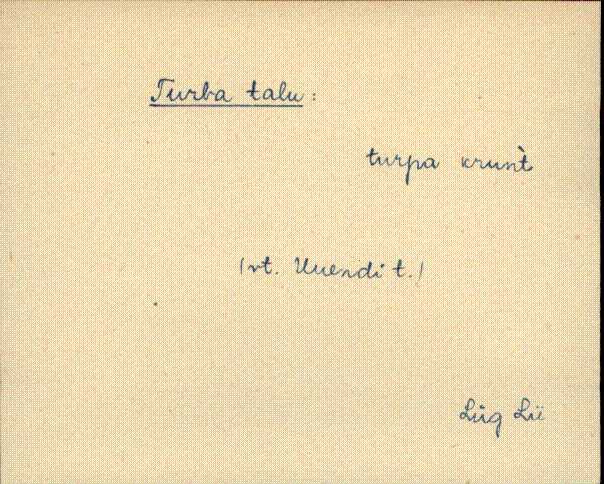 Turba talu:
turpa krunt̀
(vt. Uuendi t.)
Lüg Lü